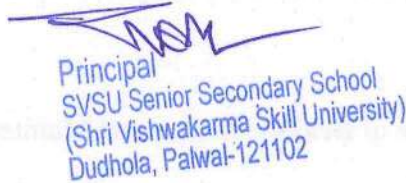 Principal
SVSU Senior Secondary School
(Shri Vishwakarma Skill University)
Dudhola, Palwal-121102